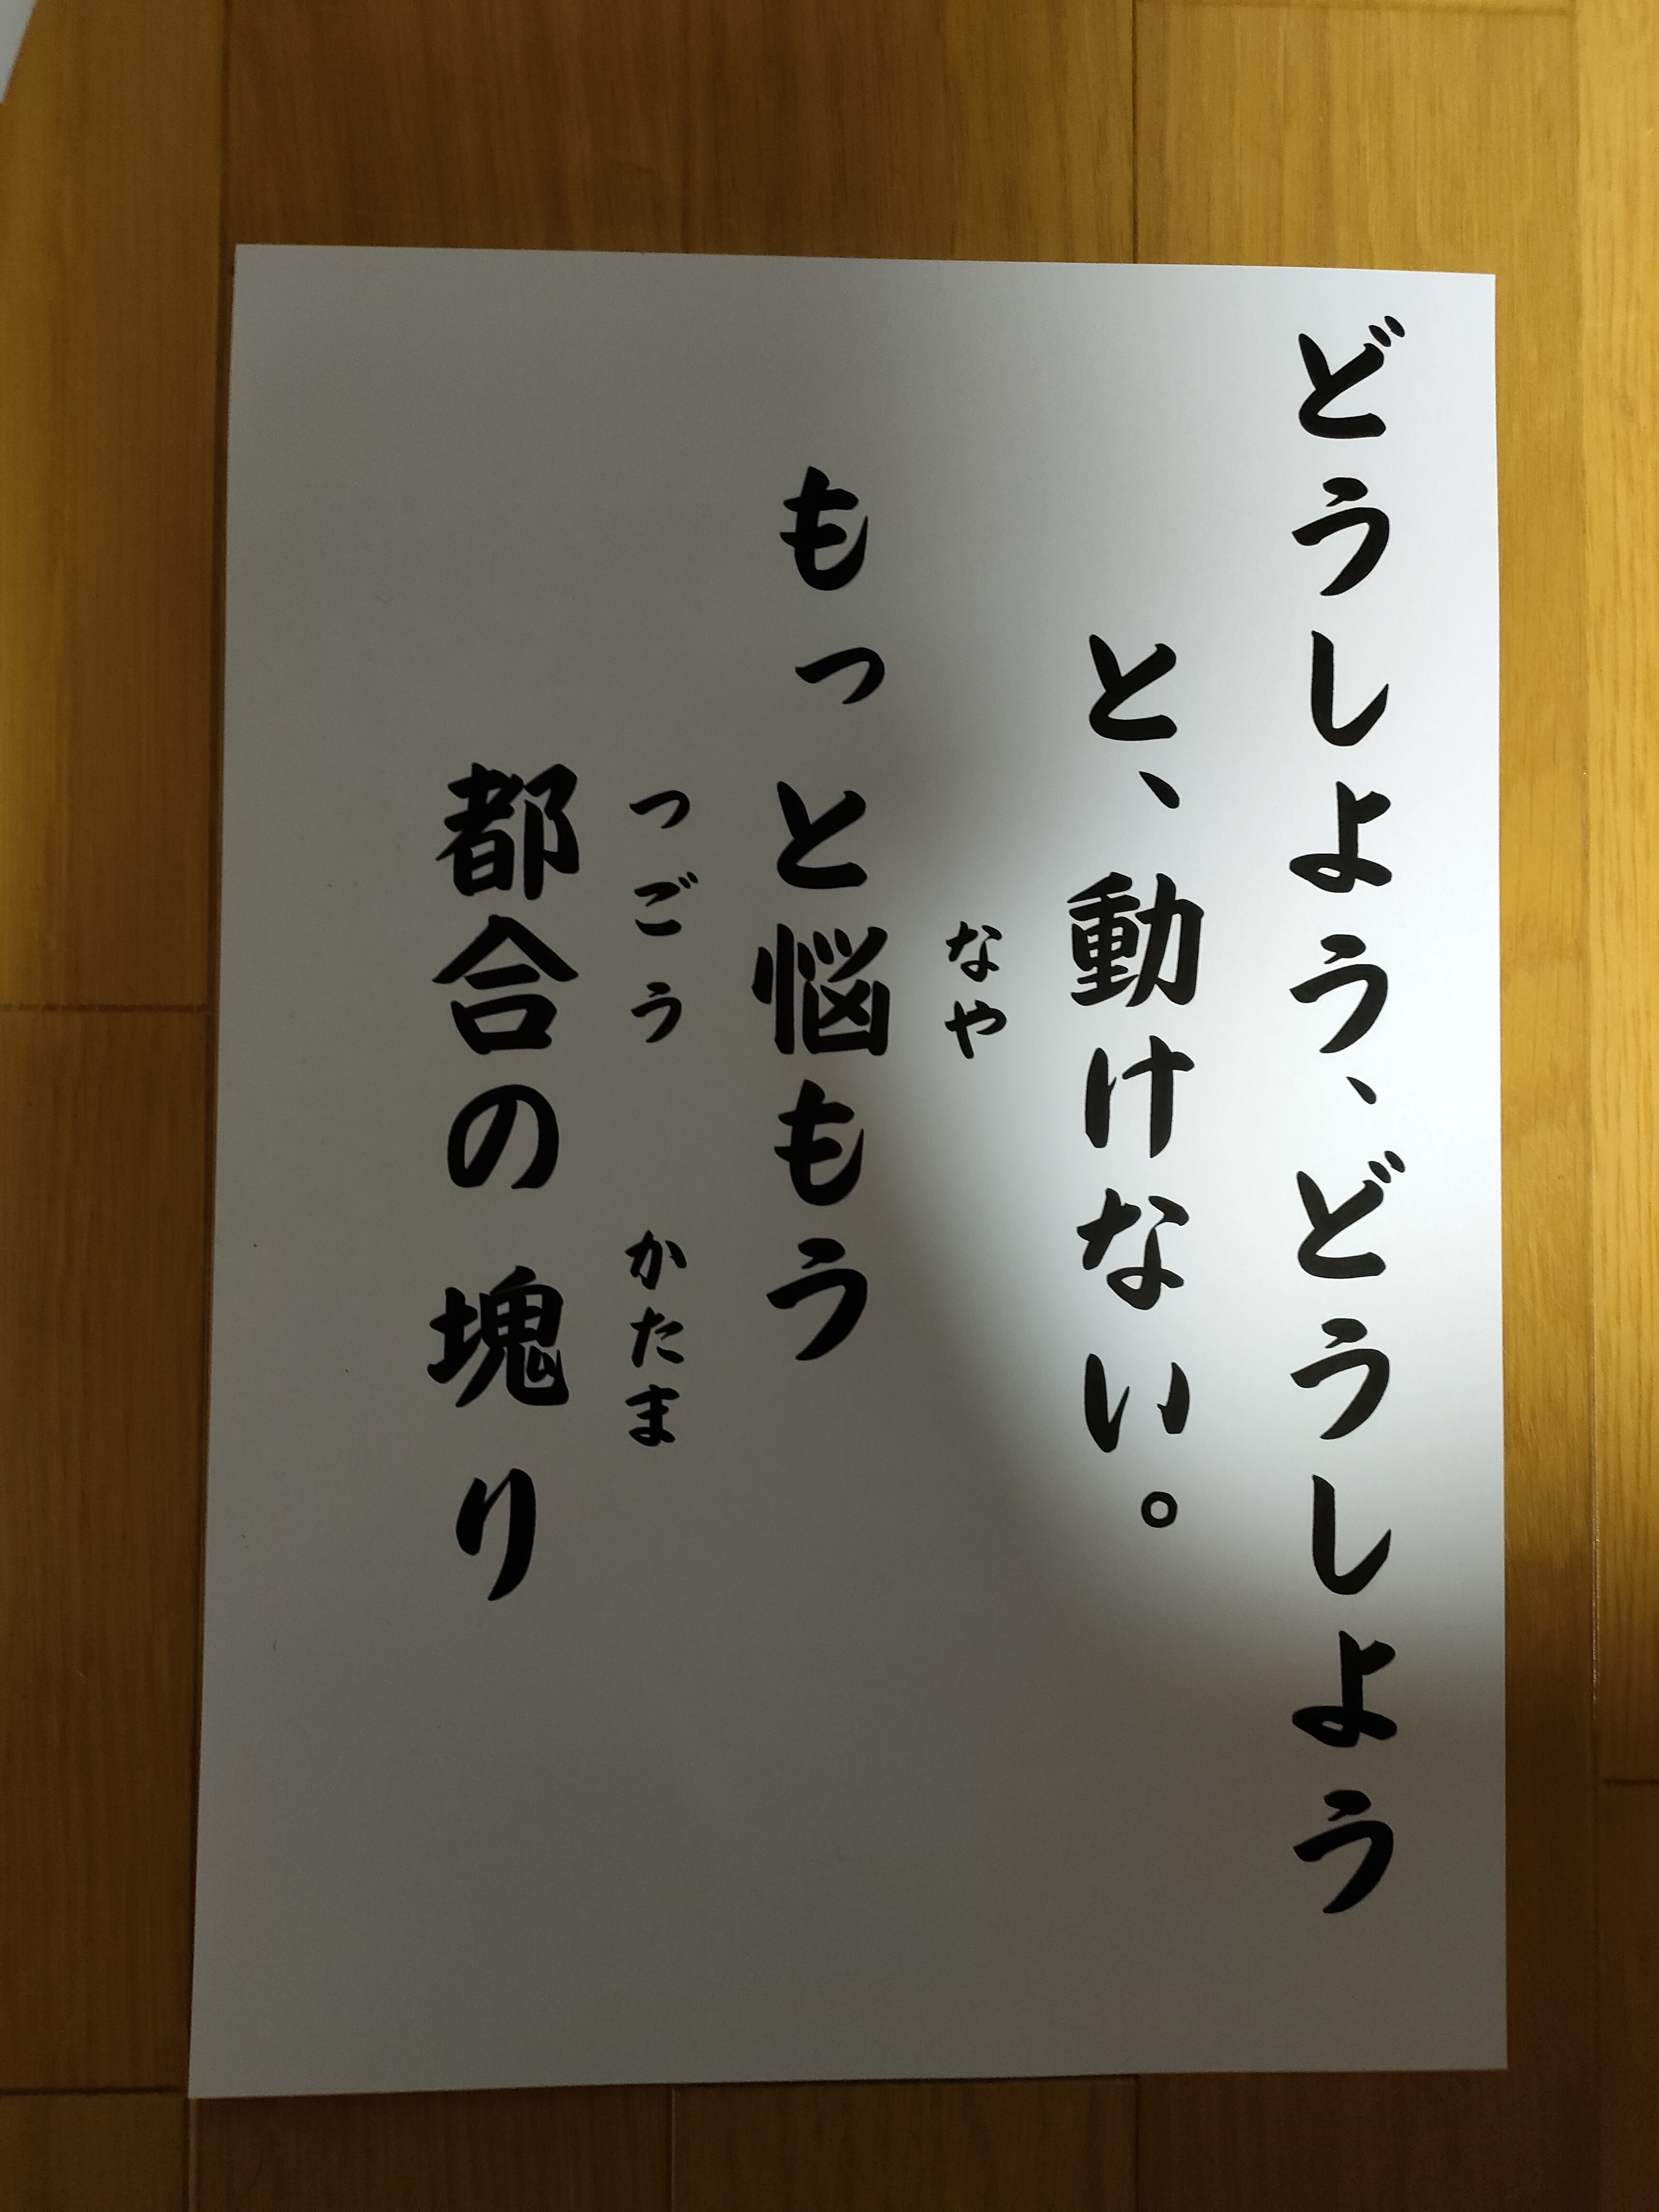 どうしよう、どうしよう
と、動けない。
なや
もっと悩もう
つごう かたま
都合の塊り